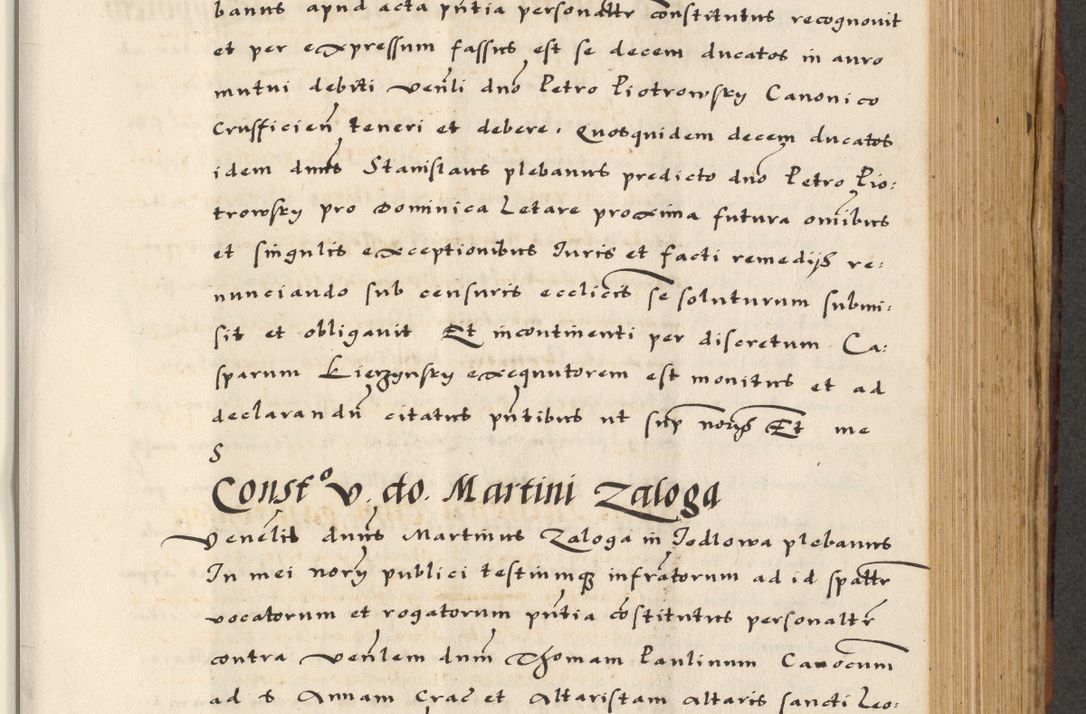 banus apud acta pntia personaltr constitutus recognouit
et per expressum fassus est se decem ducatos in auro
mutui debiti venli dno Petro Piotrowsky Canonico
Crusficien teneri et debere. Quosquidem decem ducatos
idem dnus Stanislaus plebanus predicto dno Petro Pio:
trowsky pro Dominica Letare proxima futura omibus
et singulis exceptionibus Iuris et facti remedijs re:
nunciando sub censuris ecclicis se soluturum submi:
sit et obligauit Et incontinenti per discretum Ca:
sparum Kierzynsky exequutorem est monitus et ad
declarandu citatus pntibus ut sup noris Et me
S
Constº v. do. Martini Zaloga
Venelis dnus Martinus Zaloga in Jodlowa plebanus
In mei nory publici testiumq infratorum ad id spaltr
vocatorum et rogatorum pntia costitutus personaltr
contra venlem dnm Thomam Paulinum Canocum
ad S Annam Crac et Altaristam altaris sancti Leo: